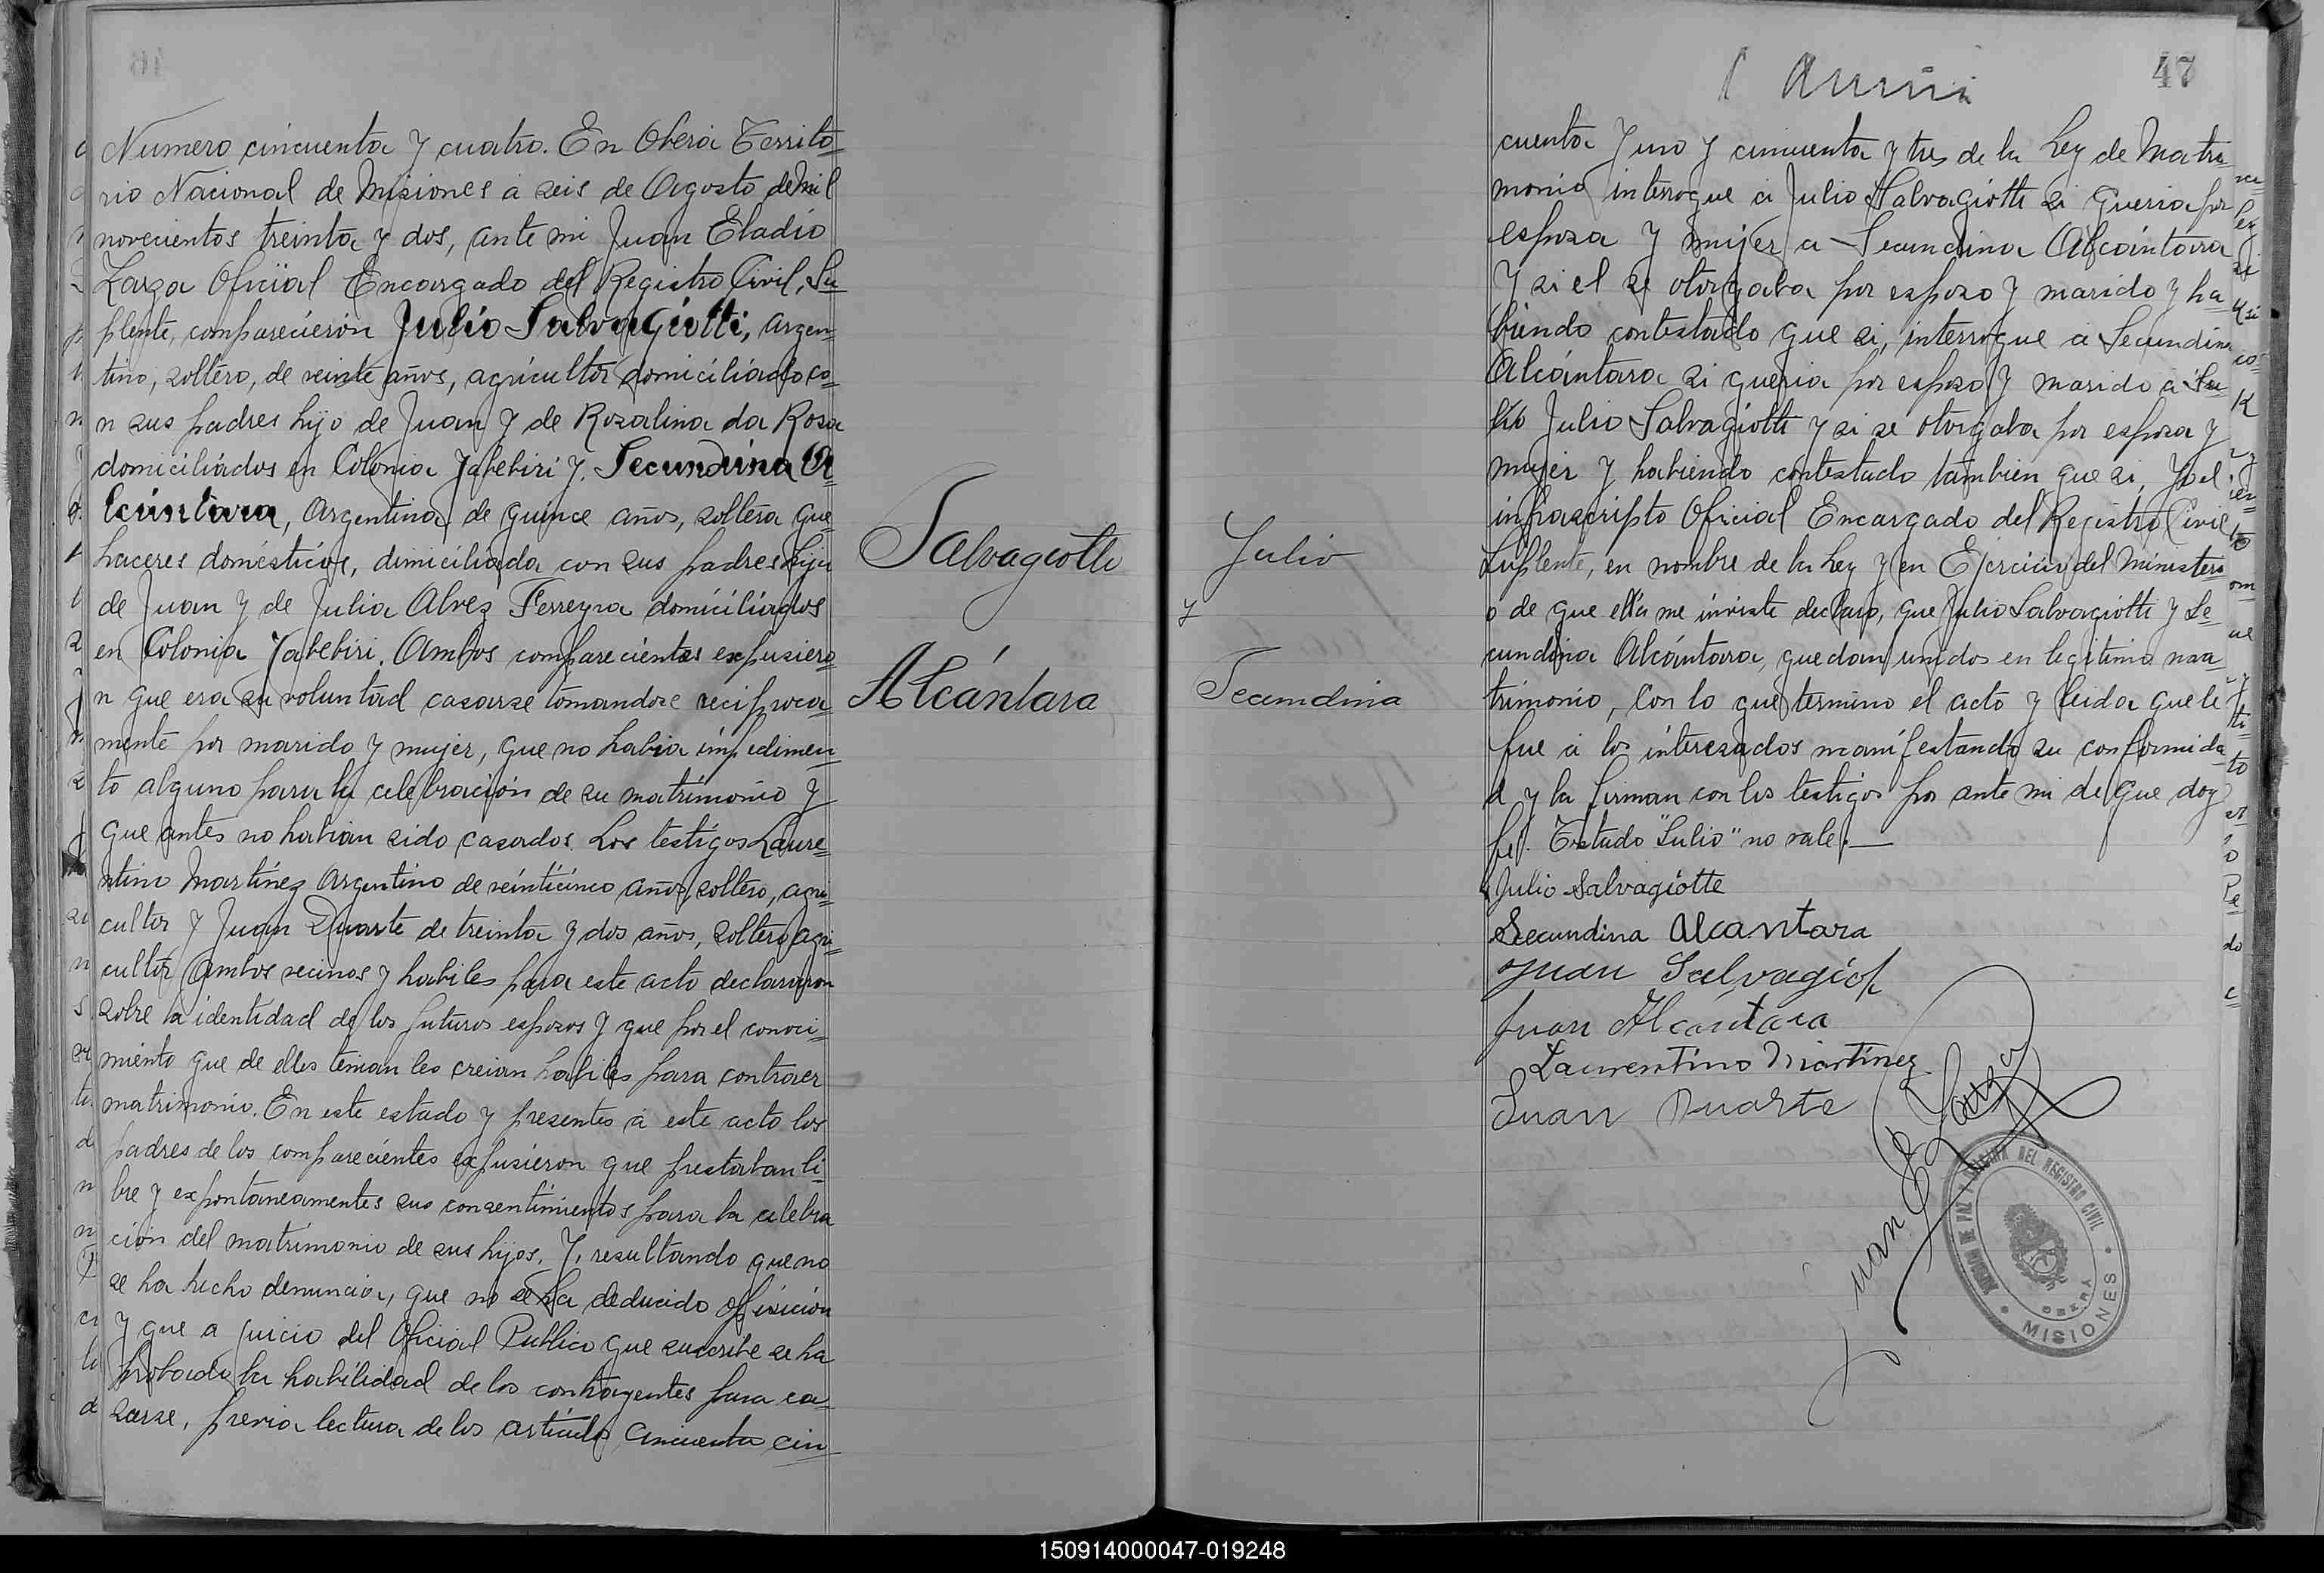 Numero cincuenta y cuatro. En Oberá Territo=
rio Nacional de Misiones á seis de Agosto de mil
novecientos treinta y dos, ante mi Juan Eladio
Zarza Oficial Encargado del Registro Civil, Su=
plente, comparecierón Julio Salvagiotti, argen=
tino, soltero, de veinte años, agricultor domiciliado co=
n sus padres hijo de Juan y de Rosalina da Rosa
domiciliados en Colonia Yabebiri y. Secundina Al=
cántara, Argentina de quince años, soltera que
haceres domésticos, dimiciliada con sus padres hija
de Juan y de Julia Alvez Ferreyra domiciliados
en Colonia Yabebiri. Ambos comparecientes expusiero=
n que era su voluntad casarse tomandose reciproca=
mente por marido y mujer, que no habia impedimen=
to alguno para la celebración de su matrimonio y
que antes no habian sido casados. Los testigos Laure=
ntino Martínez Argentino de veinticinco años, soltero, agri=
cultor y Juan Duarte de treinta y dos años, soltero agri=
cultor Ambos vecinos y habiles para este acto declararon
sobre la identidad de los futuros esposos y que por el conoci=
miento que de ellos tenian les creian habiles para contraer
matrimonio. En este estado y presentes á este acto los
padres de los comparecientes expusieron que prestaban li=
bre y expontaneamentes sus consentimientos para la celebra
ción del matrimonio de sus hijos. Y, resultando que no
se ha hecho denuncia, que no se ha deducido oposición
y que a juicio del Oficial Publico que suscribe se ha
probado la habilidad de los contrayentes para ca=
sarse, previa lectura de los articulos cincuenta cin=
Salvagiotti
Alcántara
47
Julio
y
Secundina
cuenta y uno y cincuenta y tres de la Ley de Matri
monio interrogue á Julio Salvagiotti si queria por
esposa y mujer a Secundina Alcántara
y si el se otorgaba por esposo y marido y ha=
biendo contestado que si, interrogue á Secundina
Alcántara si queria por esposo y marido á Su=
lio Julio Salvagiotti y si se otorgaba por esposa y
mujer y habiendo contestado tambien que si, Yo el
infrascripto Oficial Encargado del Registro Civil
Suplente, en nombre de la Ley y en Ejercicio del Ministeri
o de que ella me inviste declaro, que Julio Salvagiotti y Se=
cundina Alcántara, quedan unidos en legitimo ma=
trimonio, Con lo que termino el acto y leida que le
fue á los interesados manifestando su conformida
d y la firman con los testigos por ante mi de que doy
fé. Testado "Sulio" no vale.—
Julio Salvagiotte
Secundina Alcantara
Juan Salvagiot
Juan Alcántara
Laurentino Martínez
Juan Duarte
Juan E. Zarza
JUZGADO DE PAZ Y OFICINA DEL REGISTRO CIVIL
OBERÁ
MISIONES
150914000047-019248